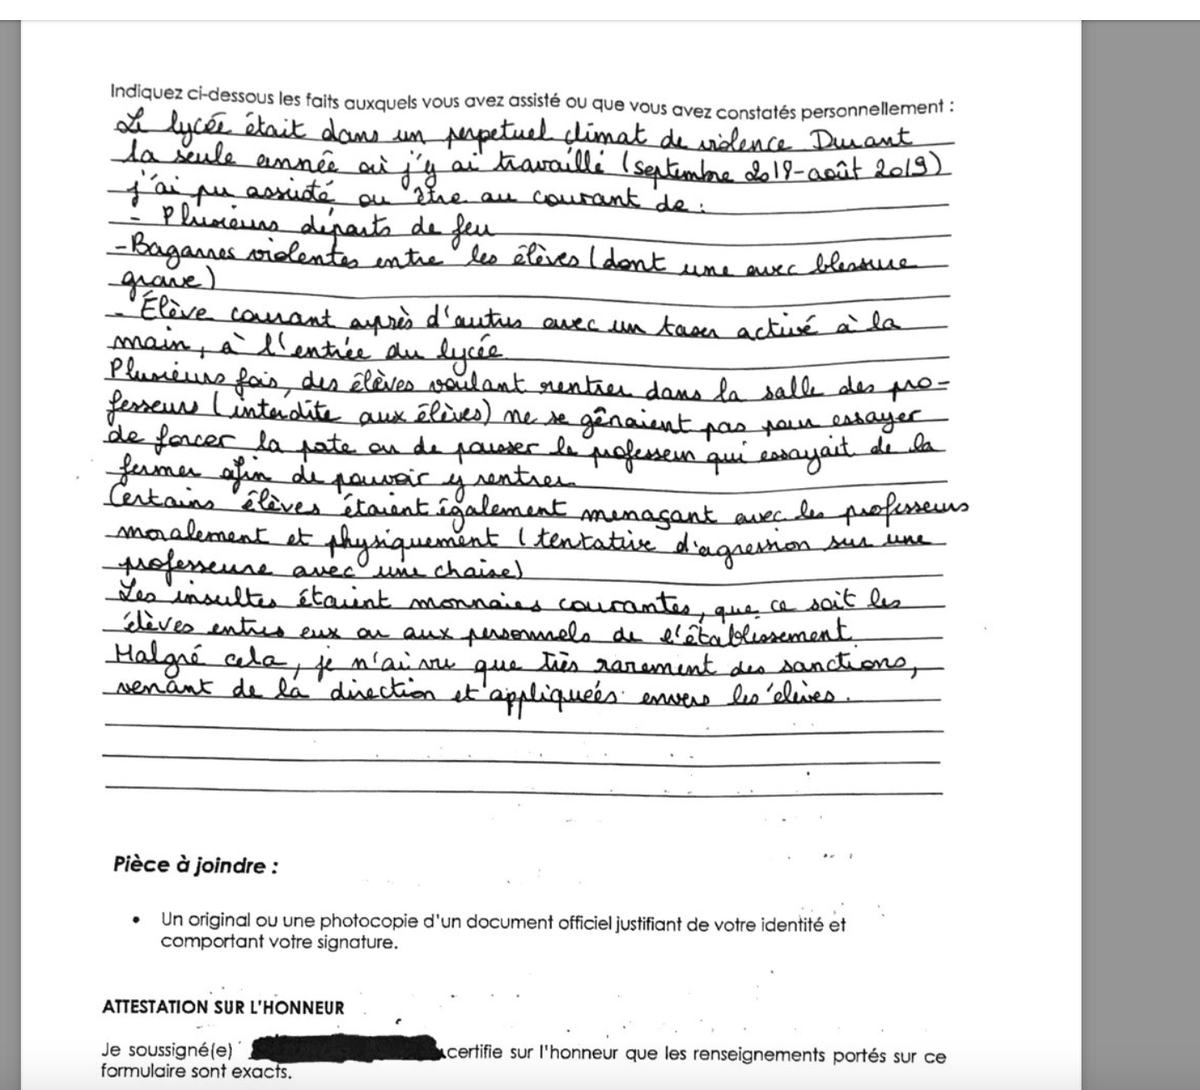 Indiquez ci-dessous les faits auxquels vous avez assisté ou que vous avez constatés personnellement :
Le lycée était dans un perpetuel climat de violence Durant
la seule année où j'y ai travaillé (septembre 2018-août 2019)
j'ai pu assisté ou être au courant de :
- Plusieurs départs de feu
- Bagarres violentes entre les élèves (dont une avec blessure
grave)
- Élève courant après d'autres avec un taser activé à la
main, à l'entrée du lycée
Plusieurs fois, des élèves voulant rentrer dans la salle des pro-
fesseurs (interdite aux élèves) ne se gênaient pas pour essayer
de forcer la porte ou de pousser le professeur qui essayait de la
fermer afin de pouvoir y rentrer
Certains élèves étaient également menaçant avec les professeurs
moralement et physiquement (tentative d'agression sur une
professeure avec une chaise)
Les insultes étaient monnaies courantes, que ce soit les
élèves entres eux ou aux personnels de l'établissement
Malgré cela, je n'ai vu que très rarement des sanctions,
venant de la direction et appliquées envers les élèves.
Pièce à joindre :
• Un original ou une photocopie d'un document officiel justifiant de votre identité et
comportant votre signature.
ATTESTATION SUR L'HONNEUR
Je soussigné(e) certifie sur l'honneur que les renseignements portés sur ce
formulaire sont exacts.